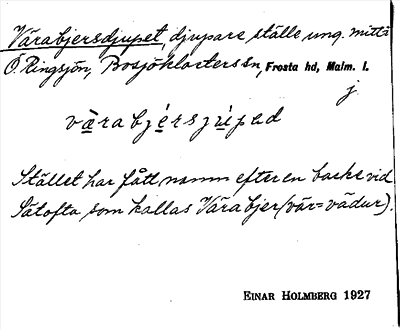 Värabjersdjupet, djupare ställe ung. mitt i
Ö. Ringsjön, Bosjöklosters sn, Frosta hd, Malm. l.
j
värabjérsjúpəd
Stället har fått namn efter en backe vid
Sätofta som kallas Värabjer (vär=vädur).
EINAR HOLMBERG 1927